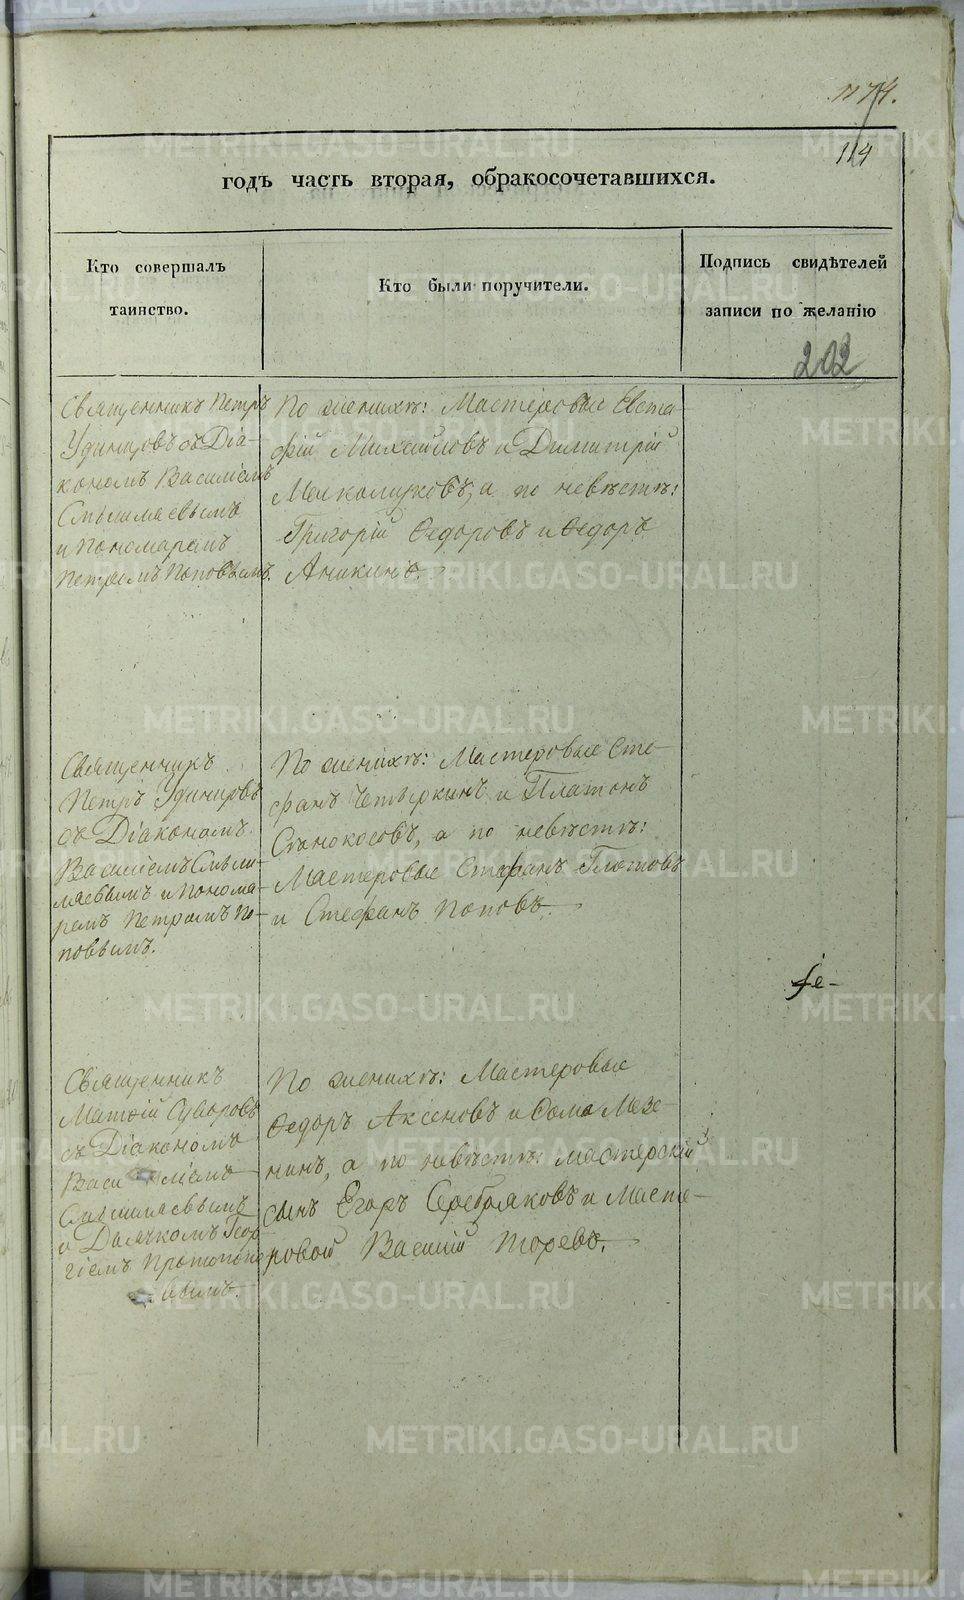 114
годъ часть вторая, обракосочетавшихся.
Кто совершалъ
таинство.
Кто были поручители.
Подпись свидѣтелей
записи по желанію
202
Священникъ Петръ
Удинцовъ съ Діа-
кономъ Василіемъ
Смышляевымъ
и Пономаремъ
Петромъ Поповымъ.
По женихѣ: Мастеровые Евста-
фій Михайловъ и Димитрій
а по невѣстѣ:
Григорій Ѳедоровъ и Ѳедоръ
Аникинъ.
Священникъ
Петръ Удинцовъ
съ Діакономъ
Василіемъ Смыш-
ляевымъ и Понома-
ремъ Петромъ По-
повымъ.
По женихѣ: Мастеровые Сте-
фанъ Четыркинъ и Платонъ
а по невѣстѣ:
Мастеровые Стефанъ Глотовъ
и Стефанъ Поповъ.
Священникъ
Матѳій Суворовъ
съ Діакономъ
Василіемъ
Смышляевымъ
и Дьячкомъ Геор-
гіемъ Протопопо-
вымъ.
По женихѣ: Мастеровые
Ѳедоръ Аксеновъ и Ѳома Мезе-
нинъ, а по невѣстѣ: мастерскій
сынъ Егоръ Серебряковъ и Масте-
ровой Василій
METRIKI.GASO-URAL.RU